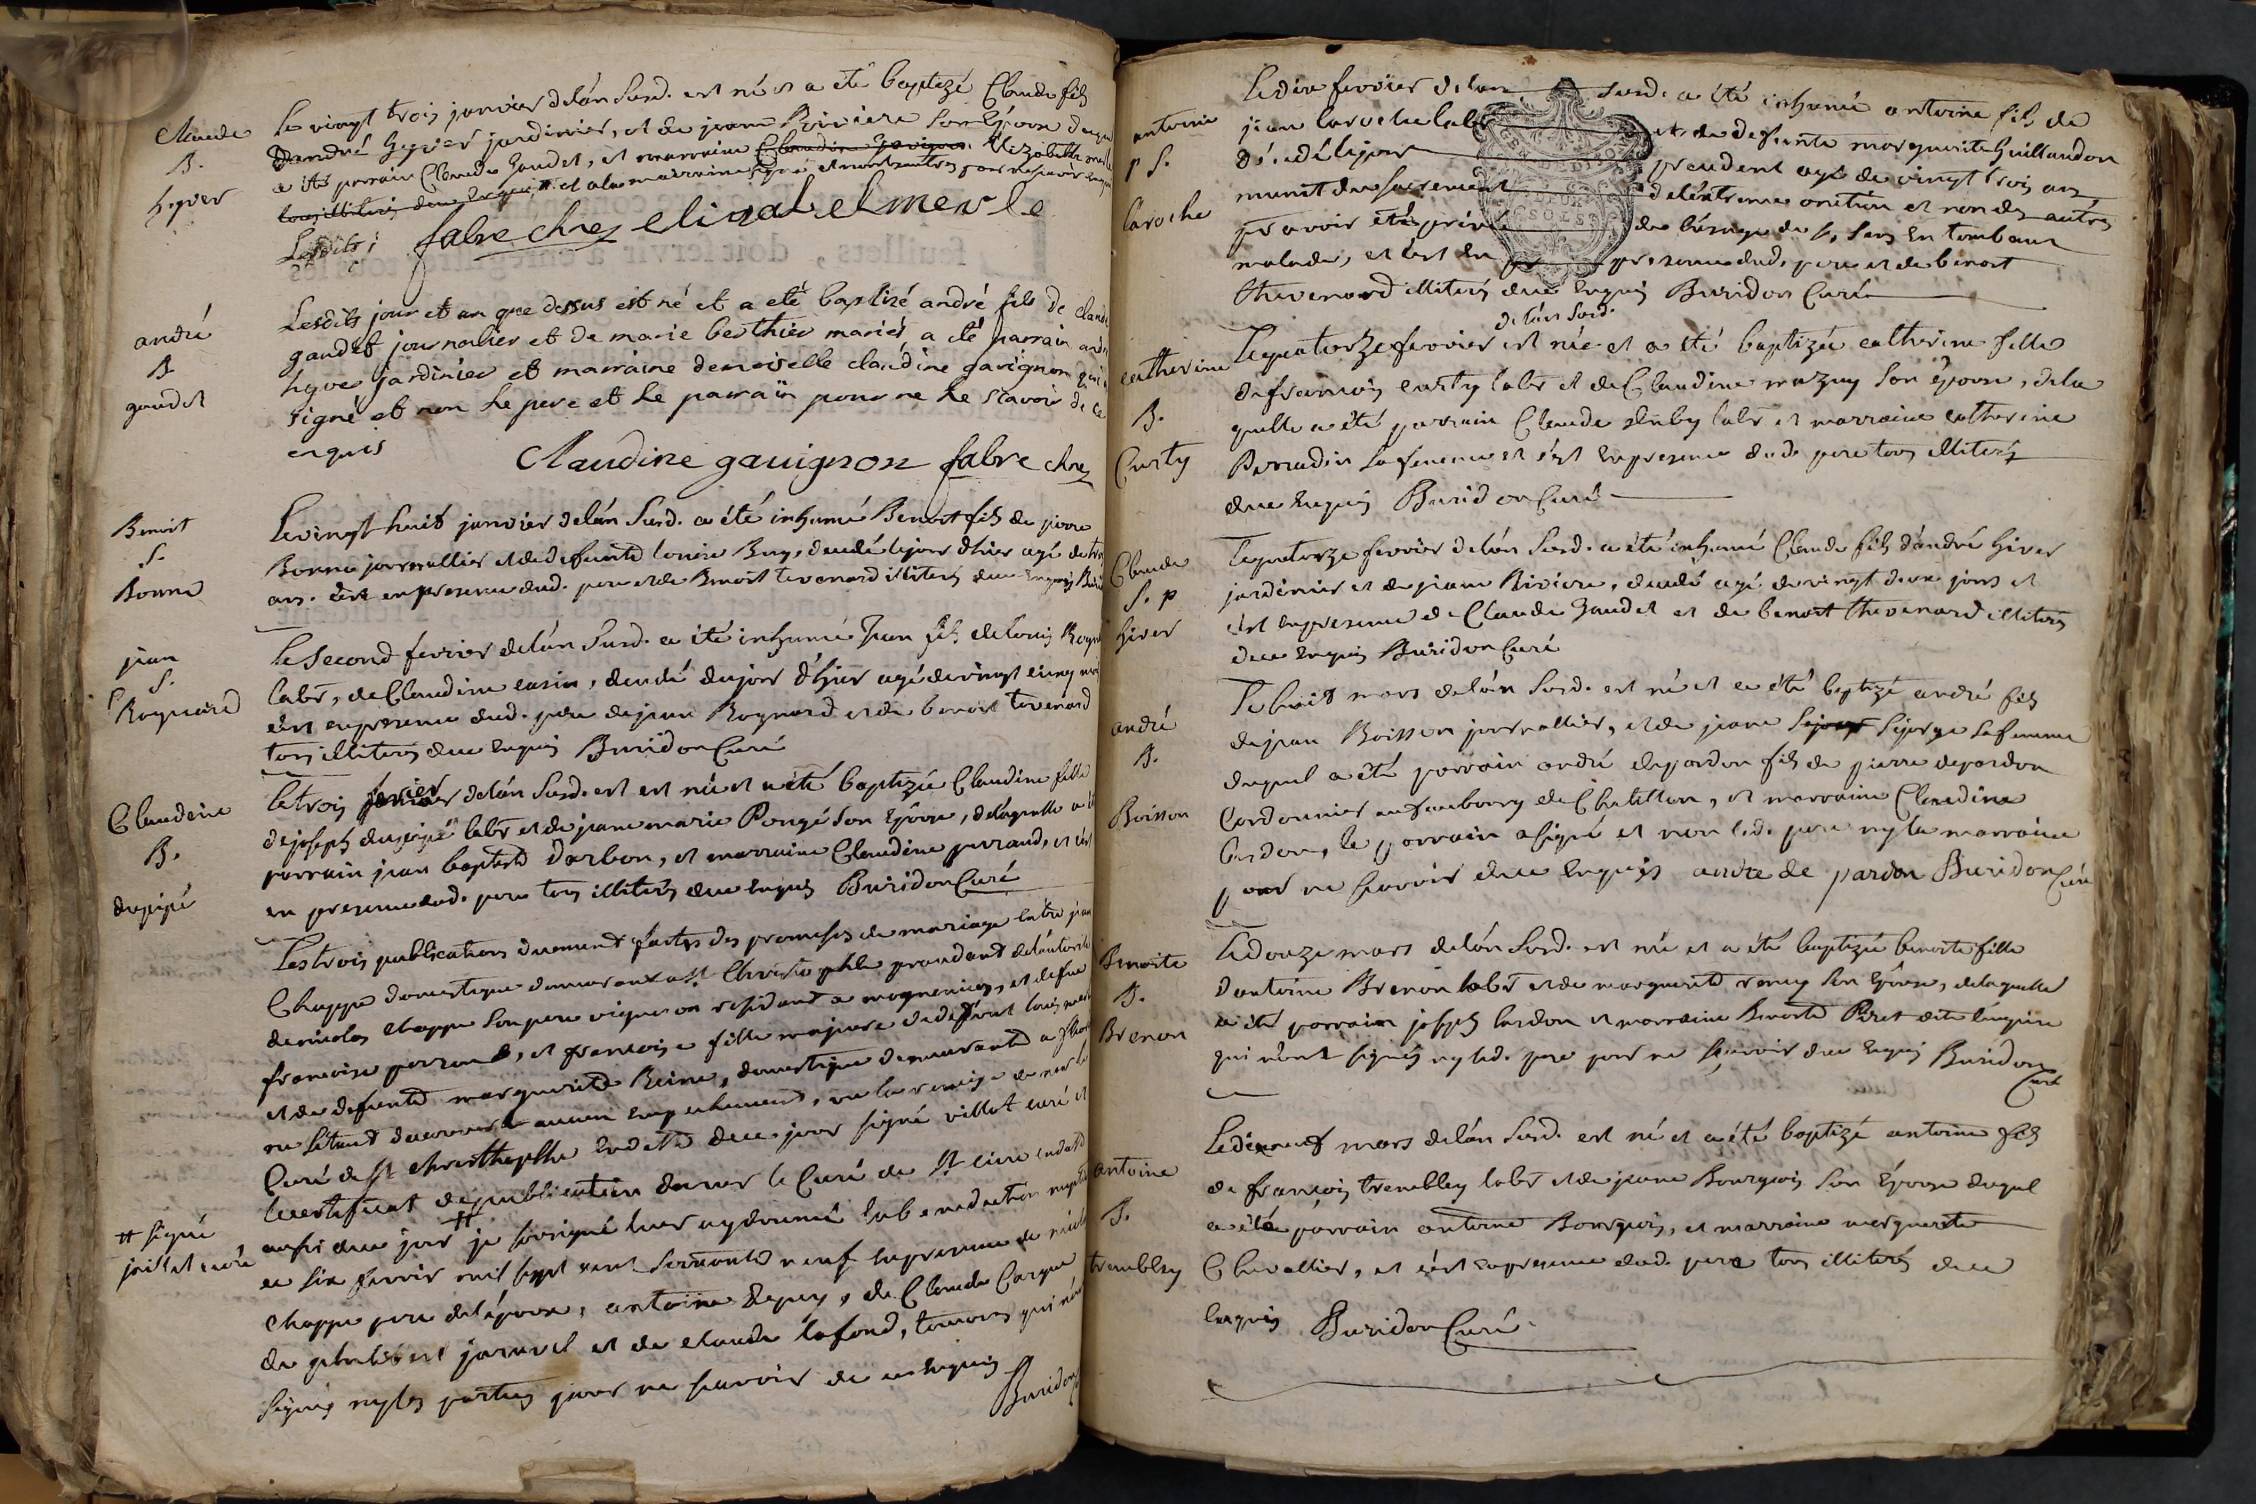 Claude
B.
hyver
Le vingt trois janvier de lán susd. est né et a été baptizé Claude fils
d'andré hyver jardinier, et de jeane Riviere son Epouse duquel
a été parrain Claude Gaudet, et marraine Claudine Gavignon Elizabeth merle
tous illiterés de ce Enquis et la marraine signé et non les autres pour ne sçavoir enquis
Lesdits fabre chre elizabet merle
andré
B
gaudet
Lesdits jour et an que dessus est né et a eté baptisé andré fils de claude
gaudet journalier et de marie berthier mariés a eté parrain andré
hyver jardinier et marraine demoiselle claudine gavignon qui a
signé et non le pere et le parrain pour ne le scavoir de ce
enquis
Claudine gauignon fabre chre
Benoit
S.
Bonne
Le vingt huit janvier de lán susd. a été inhumé Benoit fils de pierre
Bonne journallier et de defunte louise Buy, decedé le jour d'hier agé de trois
ans. c'est en presence dud. pere et de Benoit tevenard illiterés de ce Enquis
jean
S.
P
Rognard
Le second fevrier de lán susd. a été inhumé Jean fils de louis Rognard
labr, de Claudine casin, decedé du jour d'hier agé de vingt cinq
c'est en presence dud. pere de jean Rognard et de benoit tevenard
tous illiterés de ce Enquis Buridon Curé
Claudine
B.
dupipé
Le trois fevrier de lán susd. est est née et a été baptizée Claudine fille
de joseph dupipé labr et de jeane marie Pongé son Epouse, de laquelle a été
parrain jean baptiste darbon, et marraine Claudine perraud, et c'est
en presence dud. pere tous illiterés de ce Enquis Buridon Curé
Les trois publications duement faites des promesses de mariage Entre jean
Chappe domestique demeurant a St. Christophle procedant de l'autorité
de nicolas chappe son pere vigneron residant a mogneneins, et de feue
francoise perraud, et francoise fille majeure de defunt louis
et de defunte marguerite Reine, domestique demeurante a
ne s'etant decouvert aucun Empechement, vu la remise de mer le
Curé de St christhophle En date de ce jour signé villot curé et
le certificat de publication de mer le Curé de St cire en date
# signé
joillet curé
aussi de ce jour # je sousigné leur ay donné la benediction nuptiale
ce six fevrier mil sept cent soixante neuf En presence de nicolas
chappe pere de l'époux, antoine Dupuy, de Claude Carge
de philibert jaravel et de claude lafond, temoins qui n'ont
signés ny les parties pour ne sçavoir de ce Enquis
Buridon
antoine
p S.
laroche
Le dix fevrier de lan susd. a été inhumé antoine fils de
jean laroche labr et de defunte marguerite Guillaudon
dé. cedé le jour precedent agé de vingt trois ans
munit du sacrement de l'extreme onction et non des autres
pr avoir été privé de l'usage de ses sens En tombant
malade, et c'est En presence dud. pere et de benoit
thevenard illiterés de ce Enquis Buridon Curé
catherine
B.
Curty
de lán susd.
Le quatorze fevrier est née et a été baptizée catherine fille
de francois curty labr et de Claudine mazuy son Epouse, dela
quelle a été parrain Claude dluby labr et marraine catherine
Perradin sa femme et c'est En presence dud. pere tous illiterés
de ce Enquis Buridon Curé
Claude
S. p
hiver
Le quatorze fevrier de lán susd. a été inhumé Claude fils d'andré hiver
jardinier et de jeane Riviere, decedé agé de vingt deux jours et
c'est En presence de Claude Gaudet et de benoit thevenard illiterés
de ce Enquis Buridon Curé
andré
B.
Boisson
Le huit mars de lán susd. est né et a été baptizé andré fils
de jean Boisson journallier, et de jeane sijorge sa femme
duquel a été parrain andré depardon fils de pierre depardon
Cordonnier au faubourg de Chatillon, et marraine Claudine
lardon, le parrain a signé et non led. pere ny la marraine
pour ne sçavoir de ce Enquis andre de pardon Buridon Curé
Benoite
B.
Brenon
Le douze mars de lán susd. est née et a été baptizée benoite fille
d'antoine Brenon labr et de marguerite remy son Epouse, de laquelle
a été parrain joseph lardon et marraine Benoite Piret dite lespine
qui n'ont signés ny led. pere pour ne sçavoir de ce Enquis Buridon
Curé
antoine
B.
trembley
Le dixneuf mars de lán susd. est né et a été baptizé antoine fils
de françois trembley labr et de jeane Bourgeois son Epouse duquel
a été parrain antoine Bourgeois, et marraine marguerite
Chevallier, et c'est En presence dud. pere tous illiterés de ce
Enquis Buridon Curé.